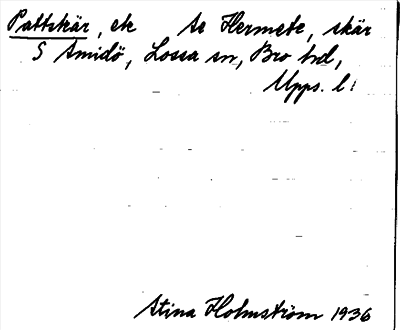 Pattskär, ek se Hermete, skär
S Amidö, Lossa sn, Bro hd,
Upps. l.
Stina Holmström 1936